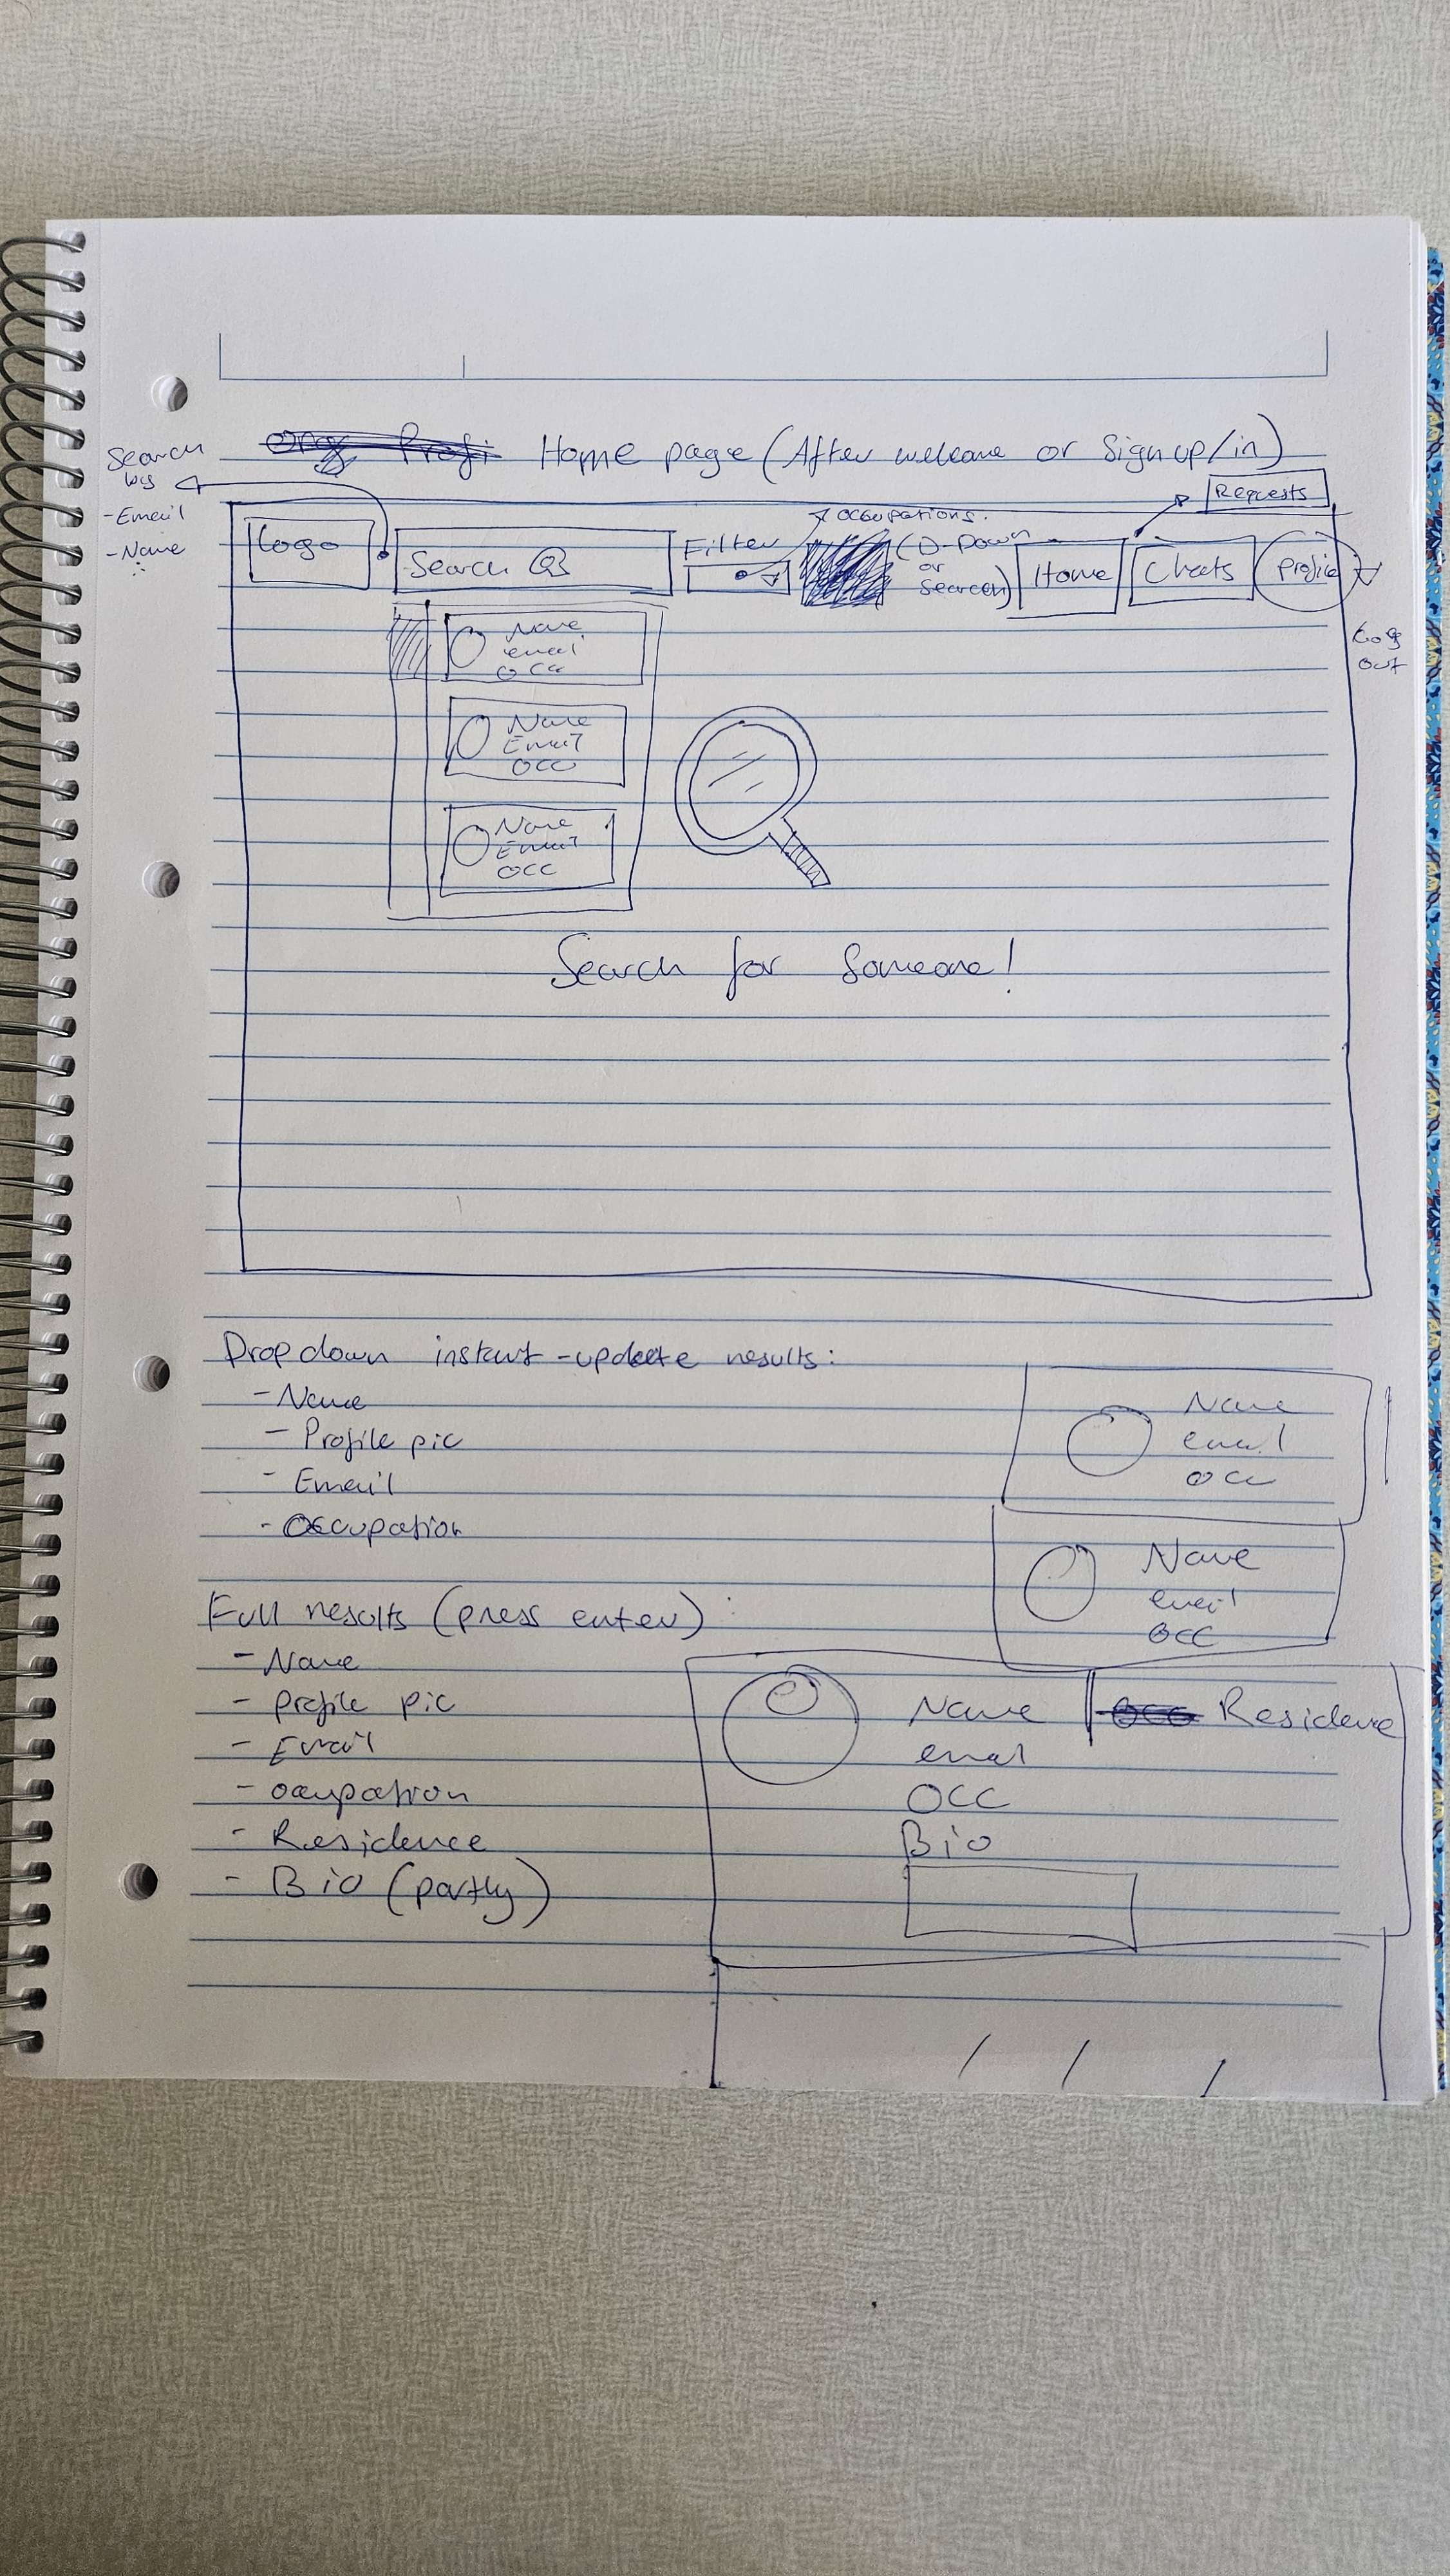 Home page (After welcome or Sign up/in)
Search
by
- Email
- Name
Requests
Occupations.
Logo
Search
Filter
(D-Down
or
Search)
Home
Chats
Profile
Log
out
Name
email
occ
Name
Email
OCC
Name
Email
OCC
Search for Someone!
Dropdown instant-update results:
- Name
- Profile pic
- Email
- Occupation
Name
email
occ
Name
email
OCC
Full results (press enter):
- Name
- profile pic
- Email
- ocupation
- Residence
- Bio (partly)
Name
Residence
email
OCC
Bio